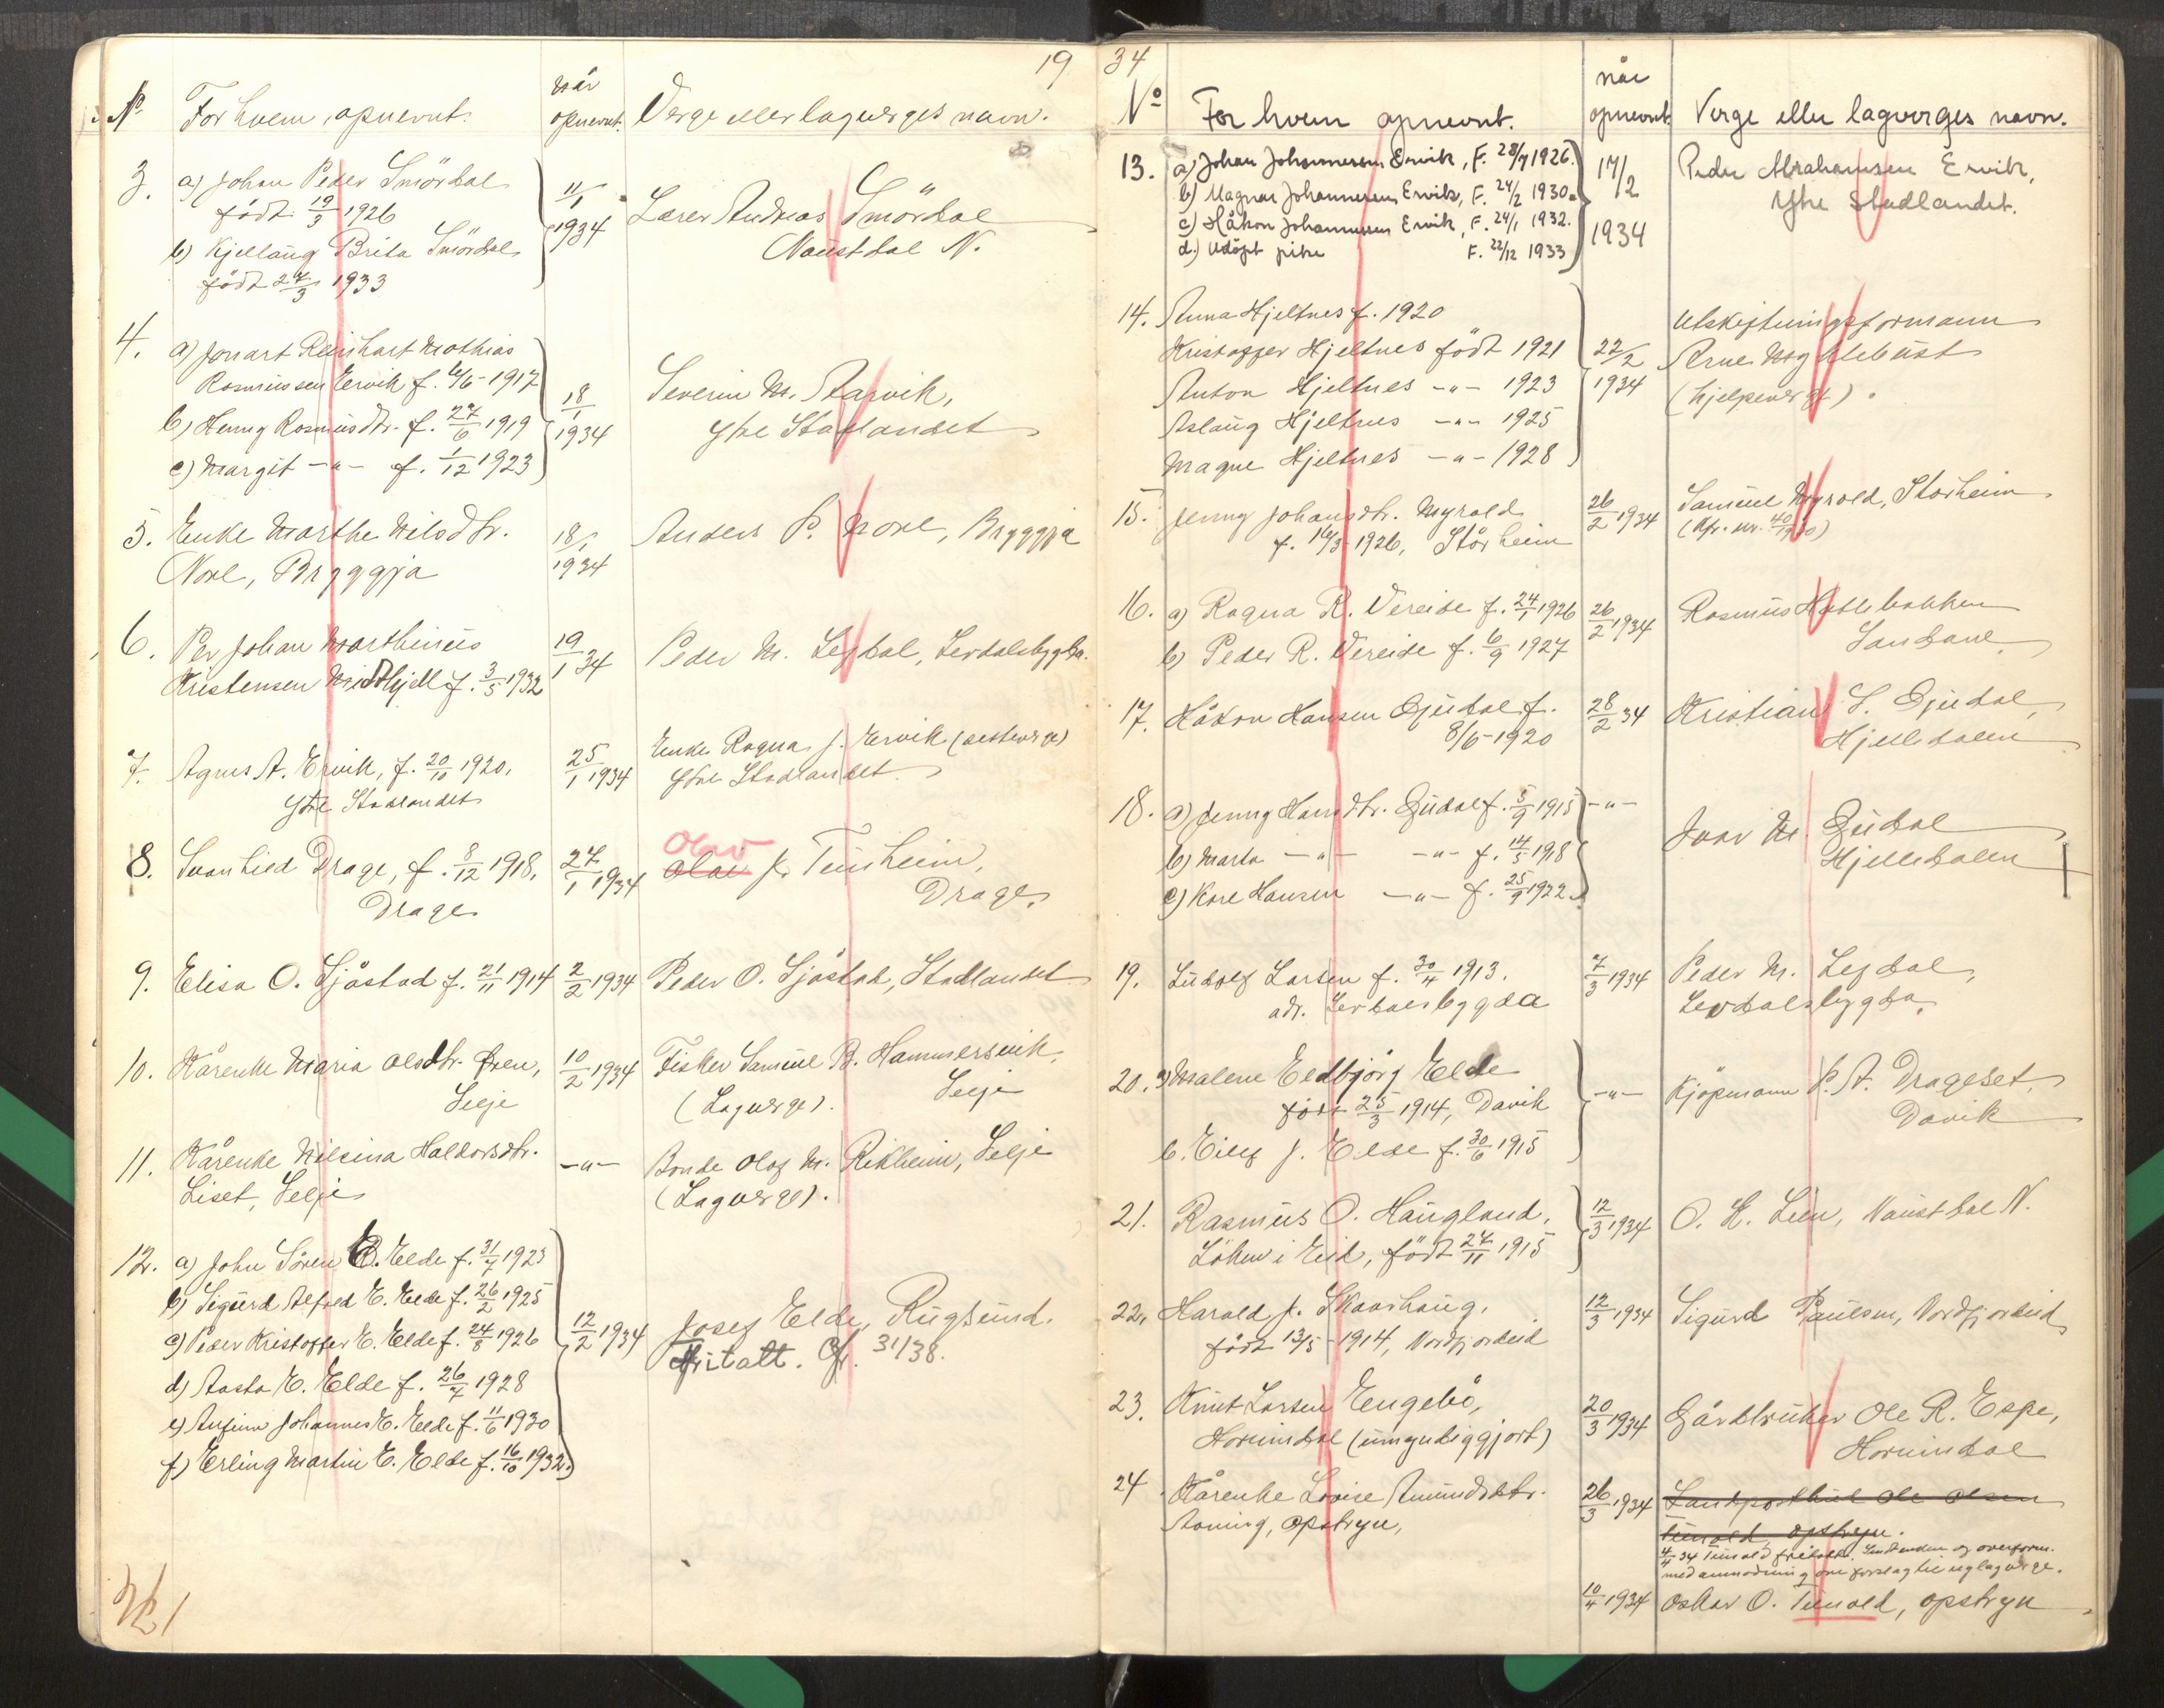 19
No For hvem opnevnt. når opnevnt. Verge eller lagverges navn.
3. a) Johan Peder Smördal
født 19/3 1926
b) Kjellaug Brita Smördal
født 24/3 1933
11/1 1934
Lærer Andreas Smördal
Naustdal N.
4. a) Jonart Reinhart Mathias
Rasmussen Ervik f. 4/6-1917
b) Henny Rasmusdtr. f. 27/6 1919
c) Margit -"- f. 1/12 1923
18/1 1934
Severin M. Aarvik,
Ytre Stadlandet
5. Enke Marthe Nilsdtr.
Nore, Bryggja
18/1 1934
Anders P. Nore, Bryggja
6. Per Johan Marthinus
Kristensen Midthjell f. 3/5 1932
19/1 34
Peder M. Legdal, Levdalsbygda.
7. Agnes A. Ervik, f. 20/10 1920,
Ytre Stadlandet
25/1 1934
Enke Ragna J. Ervik (setteverge)
Ytre Stadlandet.
8. Svanhild Drage, f. 8/12 1918,
Drage
27/1 1934
Olav
Olai J. Tunheim,
Drage.
9. Elisa O. Sjåstad f. 21/11 1914 2/2 1934 Peder O. Sjåstad, Stadlandet
10. Kårenke Maria Olsdtr. Øren,
Selje
10/2 1934
Fisker Samuel B. Hammersvik,
(Lagverge). Selje
11. Kårenke Nilsina Haldorsdtr.
Liset, Selje
-"-
Bonde Olaf M. Rikheim, Selje
(Lagverge).
12. a) John Sören E. Elde f. 31/7 1923
b) Sigurd Alfred E. Elde f. 26/2 1925
c) Peder Kristoffer E. Elde f. 24/8 1926
d) Aasta E. Elde f. 26/7 1928
e) Anfinn Johannes E. Elde f. 11/6 1930
f) Erling Martin E. Elde f. 16/10 1932.
12/2 1934
Josef Elde, Rugsund.
Fritatt. Cfr. 31/38.
34
No For hvem opnevnt. når opnevnt. Verge eller lagverges navn.
13. a) Johan Johannessen Ervik, F. 28/7 1926.
b) Magnar Johannessen Ervik, F. 24/2 1930.
c) Håkon Johannessen Ervik, F. 24/1 1932.
d.) Udöpt pike F. 22/12 1933
17/2 1934
Peder Abrahamsen Ervik,
Ytre Stadlandet.
14. Anna Hjeltnes f. 1920
Kristoffer Hjeltnes født 1921
Anton Hjeltnes -"- 1923
Aslaug Hjeltnes -"- 1925
Magne Hjeltnes -"- 1928
22/2 1934
Utskiftningsformann
Arne Myklebust
(hjelpeverge).
15. Jenny Johansdtr. Myrold
f. 16/3-1926, Storheim
26/2 1934
Samuel Myrold, Storheim
(Cfr. nr. 40/1930)
16. a) Ragna R. Vereide f. 24/1 1926
b) Peder R. Vereide f. 6/9 1927
26/2 1934
Rasmus Hatlebakken
Sandane.
17. Håkon Hansen Gjudal f.
8/6-1920
28/2 34
Kristian S. Gjudal,
Hjelledalen
18. a) Jenny Hansdtr. Gudal f. 5/9 1915
b) Marta -"- -"- f. 14/5 1918
c) Kåre Hansen -"- f. 25/9 1922.
-"-
Ivar M. Gudal
Hjelledalen
19. Ludolf Larsen f. 30/4 1913.
adr. Levdalsbygda
7/3 1934
Peder M. Legdal,
Levdalsbygda.
20. a) Malene Eldbjørg Elde
født 25/3 1914, Davik
b. Eilif J. Elde f. 30/6 1915
-"-
Kjöpmann P. A. Drageset,
Davik
21. Rasmus O. Haugland,
Löken i Eid, født 27/11 1915
12/3 1934
O. H. Lien, Naustdal N.
22. Harald J. Skaarhaug,
født 13/5-1914, Nordfjordeid
12/3 1934
Sigurd Paulsen, Nordfjordeid
23. Knut Larsen Engebö,
Hornindal (umyndiggjort)
20/3 1934
Gårdbruker Ole R. Espe,
Hornindal
24 Kårenke Lovise Amundsdtr.
Aaning, Opstryn,
26/3 1934
Landpostbud Ole Olsen
Tunold, Opstryn.
4/4 34 Tunold fritatt. Lensmannen og overform.
med anmodning om forslag til ny lagverge.
10/4 1934 Oskar O. Tunold, Opstryn